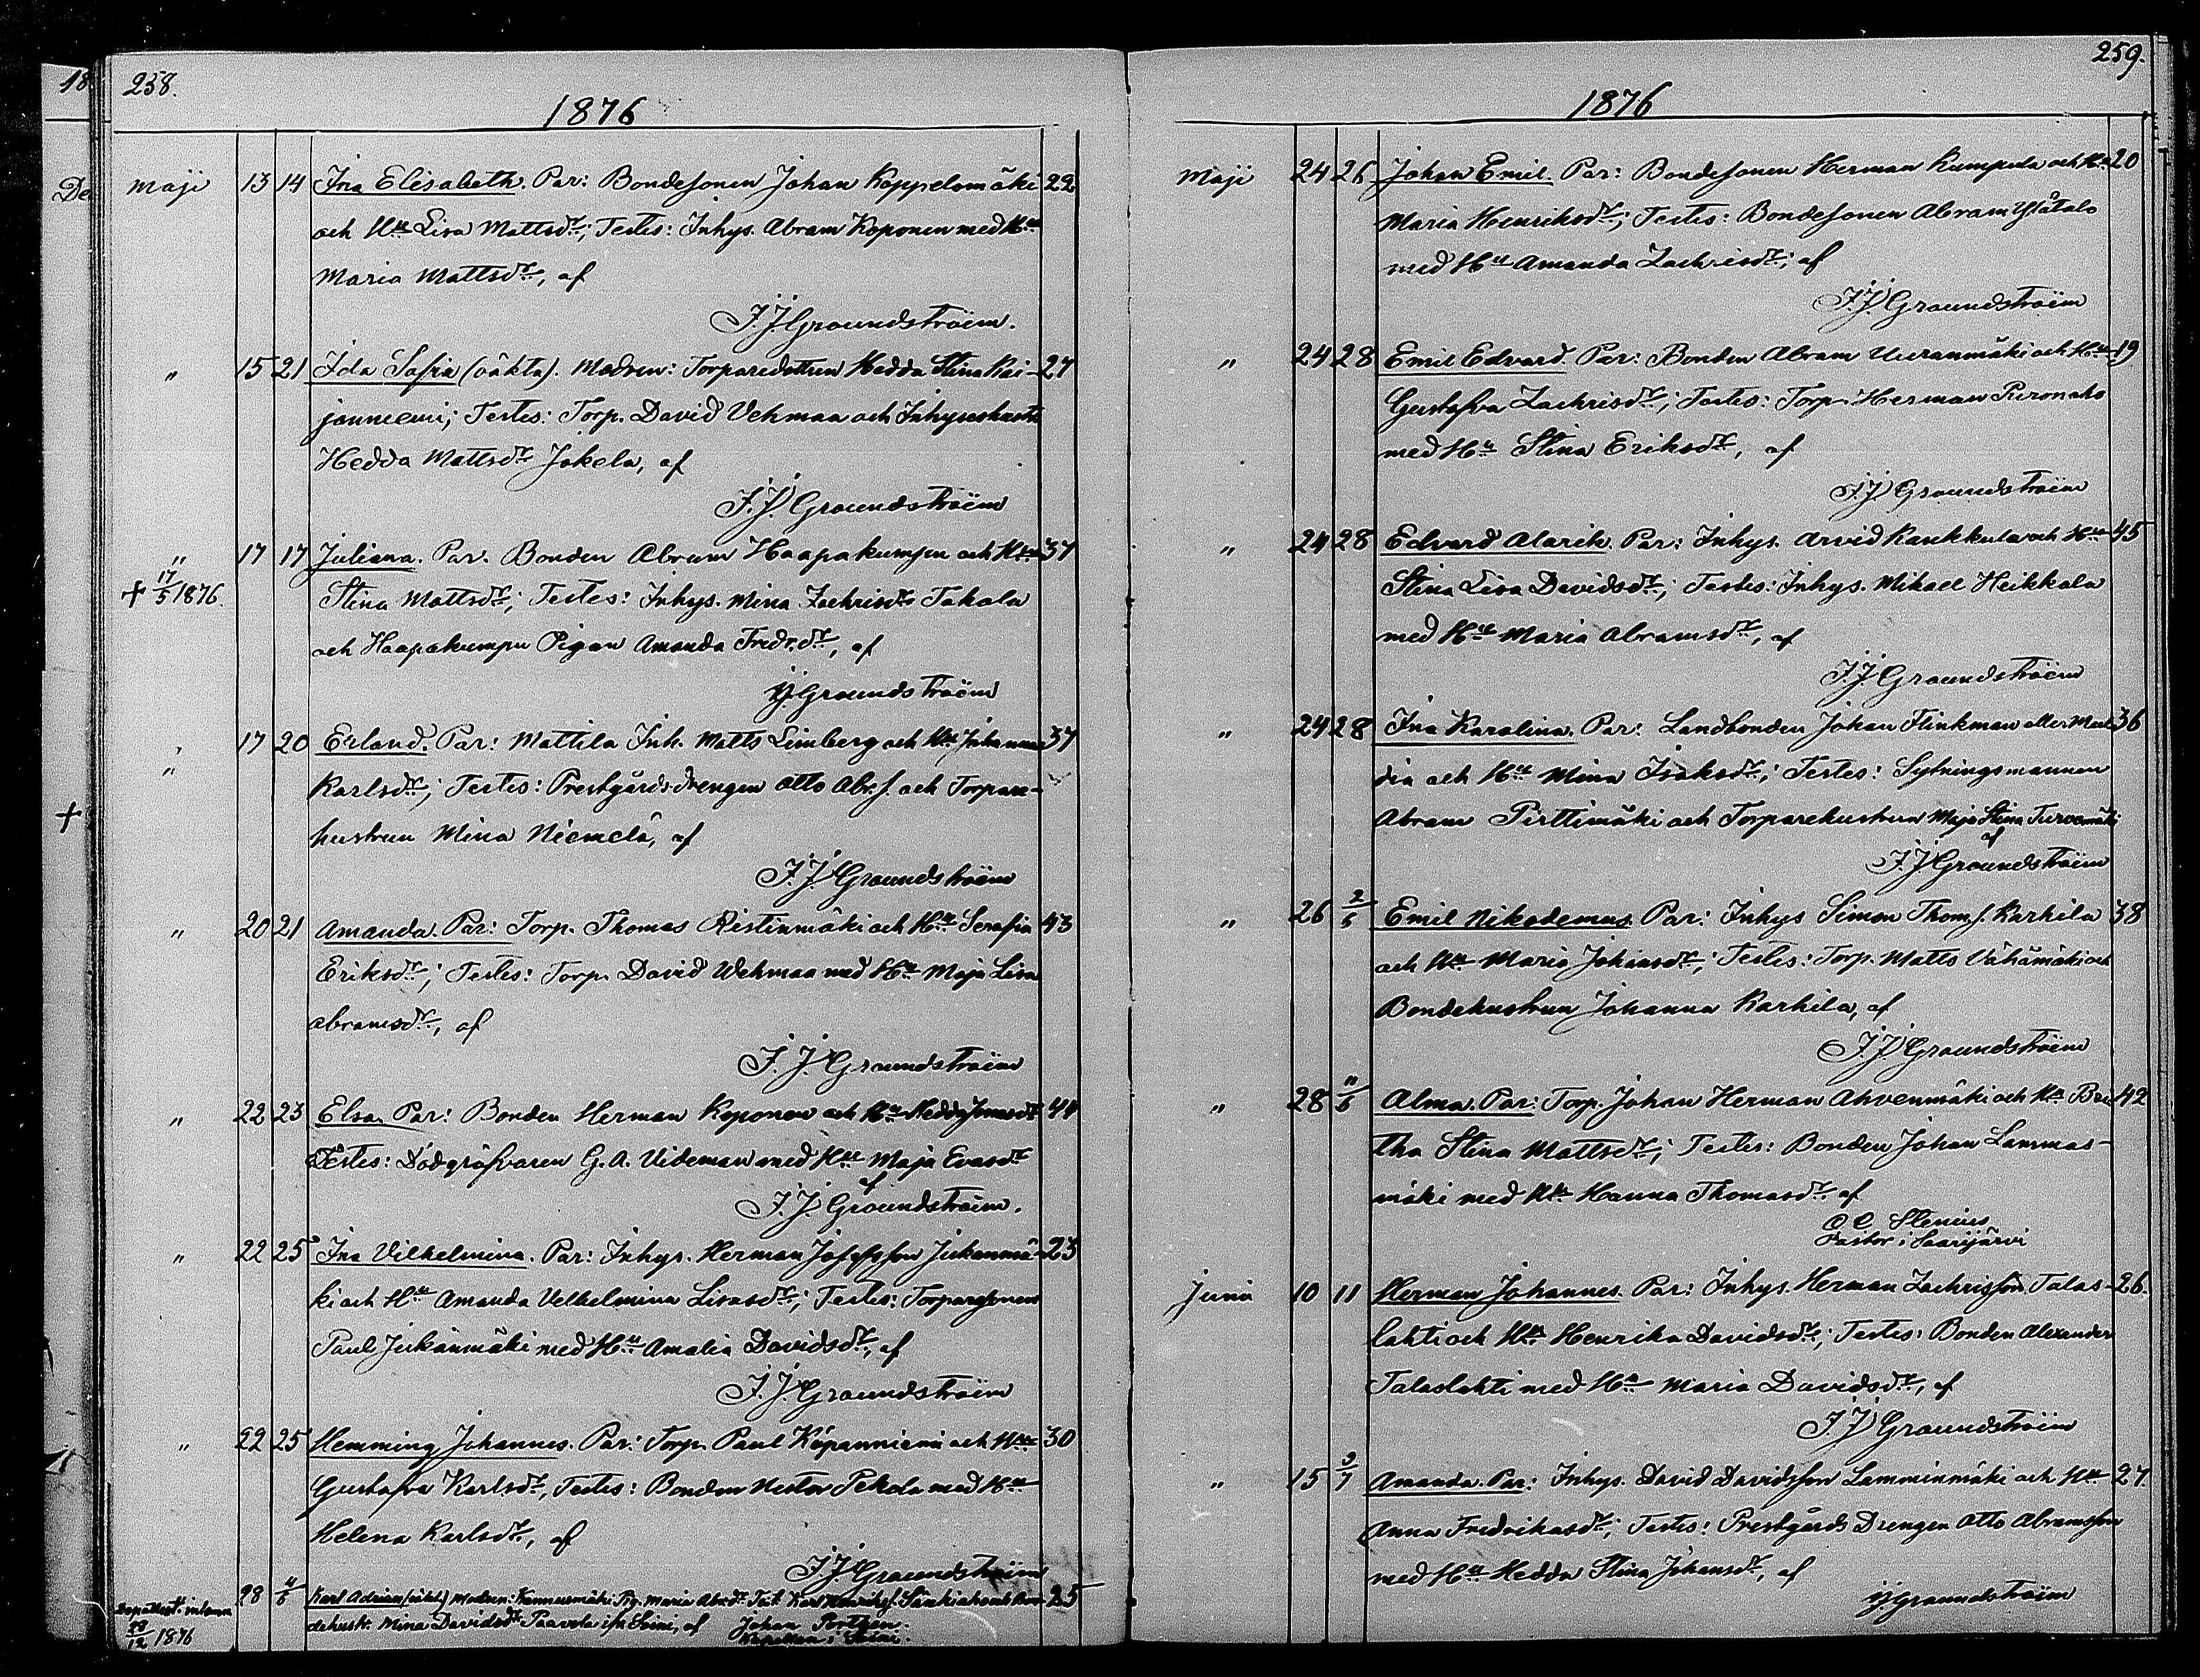 18
De
+
258.
1876
Maji 13 14 Ina Elisabeth. Par: Bondesonen Johan Koppelomäki 22
och Hu Lisa Mattsdr; Testes: Inhys. Abram Koponen med Hu
Maria Mattsdr, af
F. J. Groundstroëm.
" 15 21 Ida Sofia (oäkta). Modren: Torparedottren Hedda Stina Rai- 27
janniemi; Testes: Torp. David Vehmaa och Inhyseshustr.
Hedda Mattsdr Jokela, af
F. J. Groundstroëm
" 17 17 Juliana. Par. Bonden Abram Haapakumpu och Hu 37
+ 17/5 1876. Stina Mattsdr; Testes: Inhys. Mina Zachrisdr Takala
och Haapakumpu Pigan Amanda Fredr.dr, af
F.J. Groundstroëm
" 17 20 Erland. Par: Mattila Inh. Matts Limberg och Hu Johanna 37
Karlsdr; Testes: Prestgårds drengen Otto Abr.s. och Torpare-
hustrun Mina Niemelä, af
F. J. Groundstroëm
" 20 21 Amanda. Par: Torp. Thomas Ristinmäki och Hu Serafia 43
Eriksdr; Testes: Torp. David Wehmaa med Hu Maja Lisa
Abramsdr, af
F. J. Groundstroëm
" 22 23 Elsa. Par: Bonden Herman Koponen och Hu Hedda Jonasdr 44
Testes: Dödgräfvaren G. A. Videman med Hu Maja Evasdr
af
F. J. Groundstroëm.
" 22 25 Ina Vilhelmina. Par: Inhys. Herman Josefsson Jukanmä- 23
ki och Hu Amanda Velhelmina Lisasdr; Testes: Torparesonen
Paul Jukanmäki med Hu Amalia Davidsdr, af
F. J. Groundstroëm
" 22 25 Hemming Johannes. Par: Torp. Paul Kopanniemi och Hu 30
Gustafva Karlsdr, Testes: Bonden Nestor Pekola med Hu
Helena Karlsdr, af
F. J. Groundstroëm
28 Karl Adrian (oäkt.) Modren: Kannusmäki Pig. Maria Abr.dr Test. Karl Henriks. och Bon- 25
dehustr. Mina Davidsdr Paavola ifr. Soini, af Johan
1876 Soini.
259.
1876
Maji 24 26 Johan Emil. Par: Bondesonen Herman Kumpula och Hu 20
Maria Henriksdr; Testes: Bondesonen Abram Ylätalo
med Hu Amanda Zachrisdr; af
F. J. Groundstroëm
" 24 28 Emil Edvard. Par: Bonden Abram Uuranmäki och Hu 19
Gustafva Zachrisdr; Testes: Torp. Herman Puronaho
med Hu Stina Eriksdr, af
F. J. Groundstroëm
" 24 28 Edvard Alarik. Par: Inhys. Arvid Kaukkula och Hu 45
Stina Lisa Davidsdr; Testes: Inhys. Mikael Heikkala
med Hu Maria Abramsdr, af
F. J. Groundstroëm
" 24 28 Ina Karolina. Par: Landbonden Johan Flinkman eller Mar- 36
dia och Hu Mina Isaksdr; Testes: Sytningsmannen
Abram Pirttimäki och Torparehustrun Maja Stina Turvemäki
af
F. J. Groundstroëm
" 26 2/6 Emil Nikodemus. Par: Inhys Simon Thoms. Karhila 38
och Hu Maria Johansdr; Testes: Torp. Matts Vähämäki och
Bondehustrun Johanna Karhila, af
F. J. Groundstroëm
" 28 11/6 Alma. Par: Torp. Johan Herman Ahvenmäki och Hu Bri- 42
tha Stina Mattsdr; Testes: Bonden Johan Lammas-
mäki med Hu Hanna Thomasdr. af
O. C. Stenius
Pastor i Saarijärvi
Juni 10 11 Herman Johannes. Par: Inhys. Herman Zachrisson Talas- 26.
lahti och Hu Henrika Davidsdr; Testes: Bonden Alexander
Talaslahti med Hu Maria Davidsdr, af
F. J. Groundstroëm
" 15 2/7 Amanda. Par: Inhys. David Davidsson Lamminmäki och Hu 27.
Anna Fredrikasdr; Testes: Prestgårds Drengen Otto Abramsson
med Hu Hedda Stina Johansdr, af
F.J. Groundstroëm